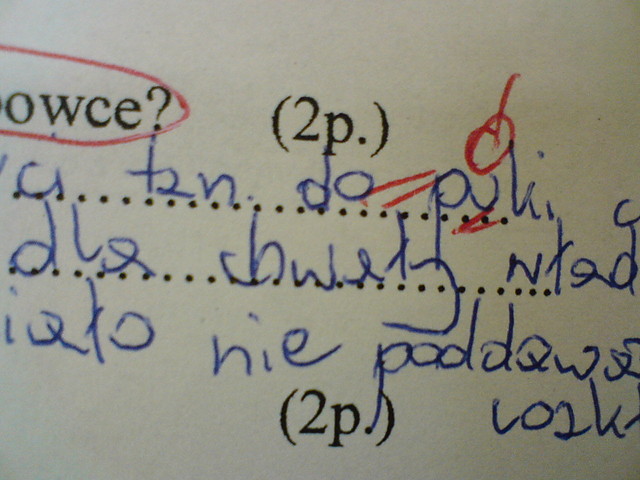 owce? (2p.)
tzn. do puki,
dla chwały wład
iało nie poddawa
(2p.) rozkł